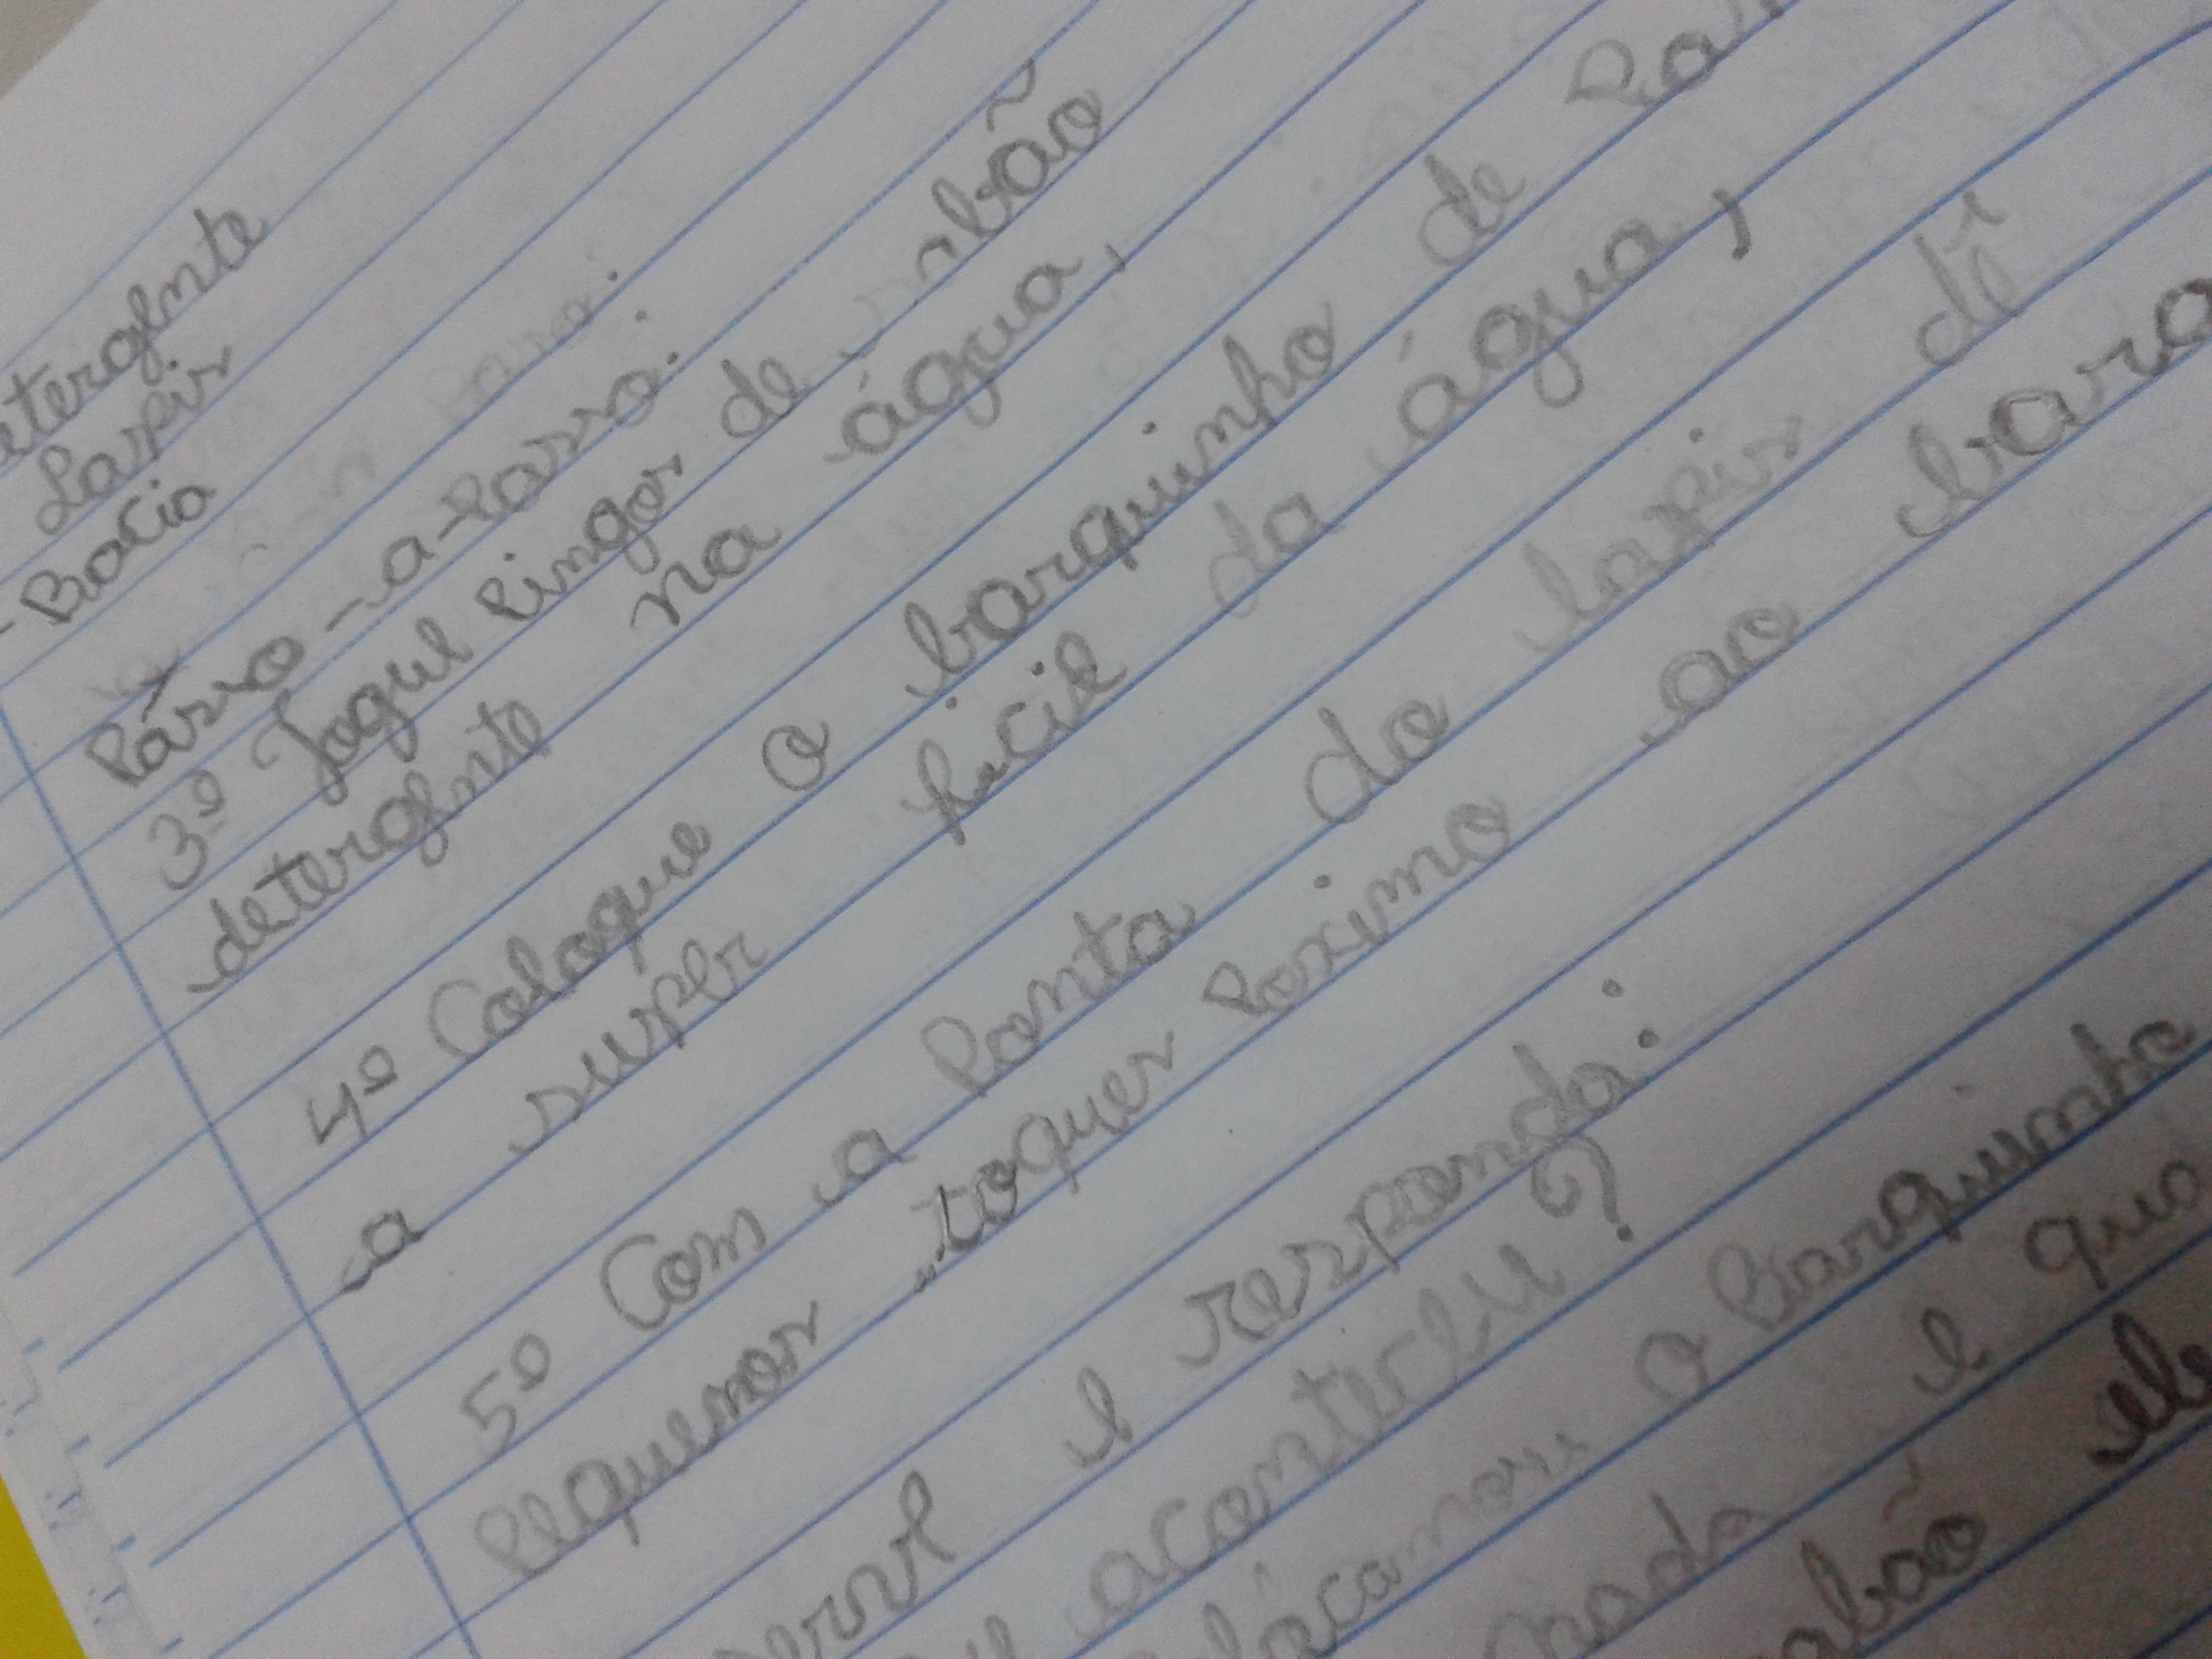 detergente
Lapis
- Bacia
Pásso-a-passo:
3º Jogue pingos de sabão
detergente na água,
4º Coloque o barquinho de
a super ficie da água,
5º Com a ponta do lapis dê
pequenos toques poximo ao
e responda:
aconteceu?
o Barquinho
nada e
sabão ele